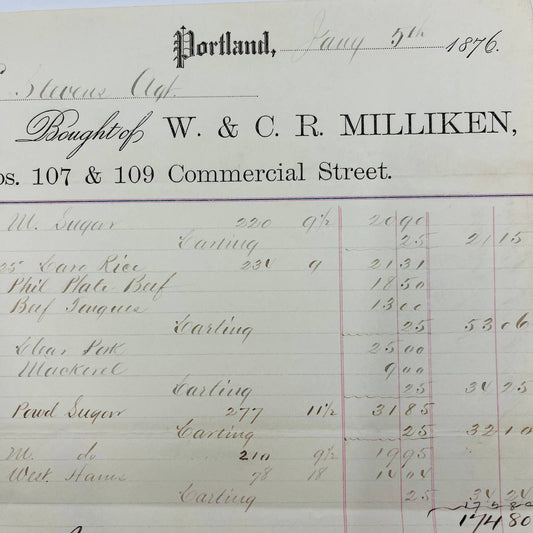 Portland, Jany 5th 1876.
Stevens Agt.
Bought of W. & C. R. MILLIKEN,
os. 107 & 109 Commercial Street.
M. Sugar 220 9½ 20 90
Carting 25 21 15
25 Caro Rice 234 9 21 31
Phil Plate Beef 18 50
Beef Tongues 13 00
Carting 25 53 06
Clear Pork 25 00
Mackerel 9 00
Carting 25 34 25
Powd Sugar 277 11½ 31 85
Carting 25 32 10
M. do 210 9½ 19 95
West. Hams 78 18 14 04
Carting 25 34 24
174 80